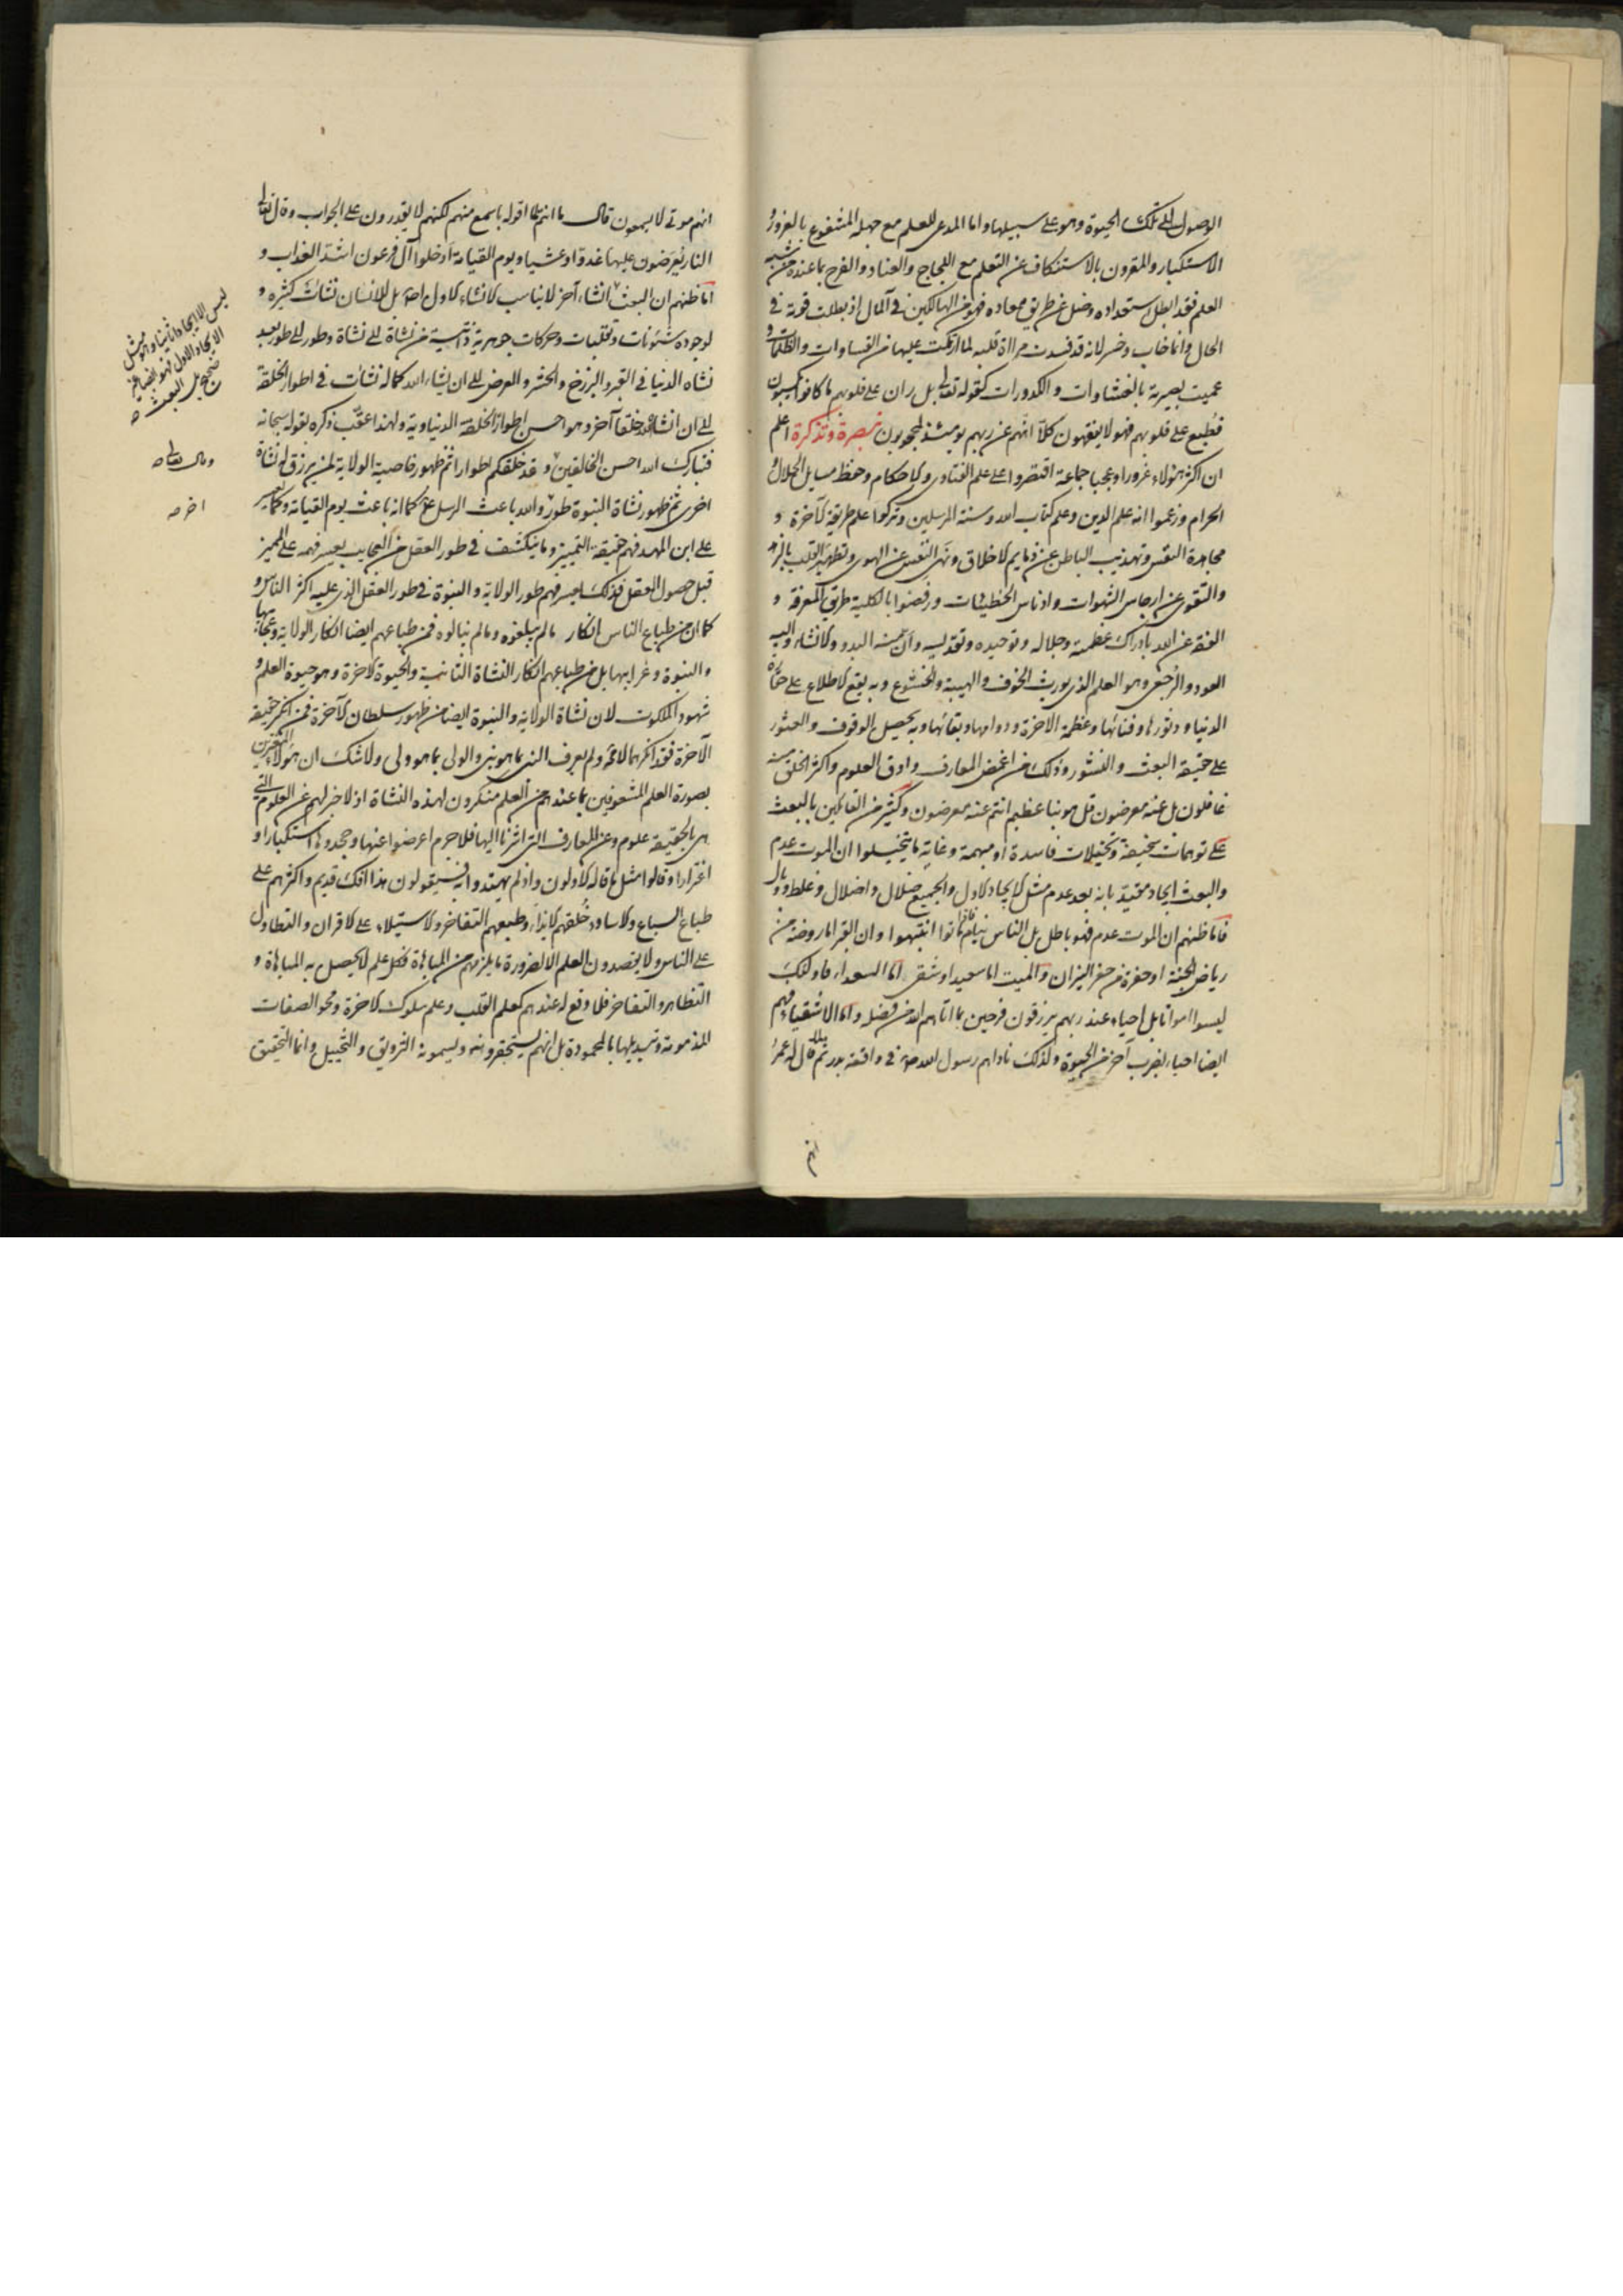 الوصول الى تلك الحيوة وهو على سبيلها واما المدعى للعلم مع جهله المشفوع بالغرور و
الاستكبار والمقرون بالاستنكاف عن التعلم مع اللجاج والعناد والفرح بما عنده من شبه
العلم فقد ابطل استعداده وضل عن طريق معاده فهو من الهالكين فى المآل اذ بطلت قوته فى
الحال وانما خاب وخسر لانه قد فسدت مرآة قلبه لما ارتكبت عليها من القساوات والظلمات و
عميت بصيرته بالغشاوات والكدورات كقوله تعالى بل ران على قلوبهم ما كانوا يكسبون
فطبع على قلوبهم فهو لا يفقهون كلا انهم عن ربهم يومئذ لمحجوبون تبصرة وتذكرة اعلم
ان اكثر هؤلاء غرورا وعجبا جماعة اقتصروا على علم الفتاوى والاحكام وحفظ مسايل الحلال و
الحرام وزعموا انه علم الدين وعلم كتاب الله وسنة المرسلين وتركوا علم طريقة الآخرة و
مجاهدة النفس وتهذيب الباطن عن ذمايم الاخلاق ونهى النفس عن الهوى وتطهير القلب بالزهد
والتقوى عن ارجاس الشهوات وادناس الخطيئات ورفضوا بالكلية طريق المعرفة و
الفقه عن الله بادراك عظمته وجلاله وتوحيده وتقديسه وان منه البدو والانشاء واليه
العود والرجعى وهو العلم الذى يورث الخوف والهيبة والخشوع وبه يقع الاطلاع على حقارة
الدنيا ودثورها وفنائها وعظمة الاخرة ودوامها وبقائها وبه يحصل الوقوف والعثور
على حقيقة البعث والنشور وذلك من اغمض المعارف وادق العلوم واكثر الخلق منه
غافلون بل عنه معرضون قل هو نبا عظيم انتم عنه معرضون وكثير من القائلين بالبعث
على توهمات سخيفة وتخيلات فاسدة او مبهمة وغاية ما يتخيلوا ان الموت عدم
والبعث ايجاد مقيد بانه بعد عدم مثل الايجاد الاول والجميع ضلال واضلال وغلط ووبال
فاما ظنهم ان الموت عدم فهو باطل بل الناس نيام فاذا ماتوا انتبهوا وان القبر اما روضة من
رياض الجنة او حفرة من حفر النيران والميت اما سعيد او شقى اما السعداء فاولئك
ليسوا امواتا بل احياء عند ربهم يرزقون فرحين بما اتاهم الله من فضله واما الاشقياء فهم
ايضا احياء بضرب آخر من الحيوة ولذلك ناداهم رسول الله ص فى واقعة بدر ثم قال له عمر
انهم
انهم موتى لا يسمعون قال ما انتم لما اقوله باسمع منهم لكنهم لا يقدرون على الجواب وقال تعالى
النار يعرضون عليها غدوا وعشيا ويوم القيامة ادخلوا آل فرعون اشد العذاب و
اما ظنهم ان البعث انشاء آخر لا يناسب الانشاء الاول اصلا بل للانسان نشآت كثيرة و
لوجوده شئونات وتقلبات وحركات جوهرية ذاتية من نشاة الى نشاة وطور الى طور بعد
نشاه الدنيا فى القبر والبرزخ والحشر والعرض الى ان يشاء الله كما له نشآت فى اطوار الخلقة
الى ان انشاه الله خلقا آخر وهو احسن اطوار الخلقة الدنياوية ولهذا عقب ذكره بقوله سبحانه
فتبارك الله احسن الخالقين وقد خلقكم اطوارا ثم ظهور خاصية الولاية لمن يرزق له نشاة
اخرى ثم ظهور نشاة النبوة طور والله باعث الرسل كما انه باعث يوم القيامة وكما يعسر
على ابن المهد فهم حقيقة التمييز وما ينكشف فى طور العقل من العجايب يعسر فهمه على المميز
قبل حصول العقل فكذلك يعسر فهم طور الولاية والنبوة فى طور العقل الذى عليه اكثر الناس و
كما ان من طباع الناس انكار ما لم يبلغوه وما لم ينالوه فمن طباعهم ايضا انكار الولاية وعجائبها
والنبوة وغرايبها بل من طباعهم انكار النشاة الثانية والحيوة الآخرة وهو حيوة العلم و
شهود الملكوت لان نشاة الولاية والنبوة ايضا من ظهور سلطان الآخرة فمن انكر حقيقة
الآخرة فقد انكرهما لا محة ولم يعرف النبى بما هو نبى والولى بما هو ولى ولا شك ان هؤلاء المغترين
بصورة العلم المشعوفين بما عندهم من العلم منكرون لهذه النشاة اذ لا خبر لهم عن العلوم التى
هى بالحقيقة علوم وعن المعارف التى اشرنا اليها فلا جرم اعرضوا عنها وجحدوها استكبارا و
اغترارا وقالوا مثل ما قاله الاولون واذ لم يهتدوا به فسيقولون هذا افك قديم واكثرهم على
طباع السباع والاساود خلقهم الايذاء وطبعهم التفاخر والاستيلاء على الاقران والتطاول
على الناس ولا يقصدون العلم الا لضرورة ما يلزمهم من المباهاة فكل علم لا يحصل به المباهاة و
التظاهر والتفاخر فلا وقع له عندهم كعلم القلب وعلم سلوك الآخرة ومحو الصفات
المذمومة وتبديلها بالمحمودة بل انهم يستحقرونه ويسمونه التزويق والتخييل وانما التحقيق
ليس الا ايجادا ثانيا وهو مثل
الايجاد الاول فهو ايضا غير
صحيح بل البعث ص
وقال تعالى ص
اخر ص